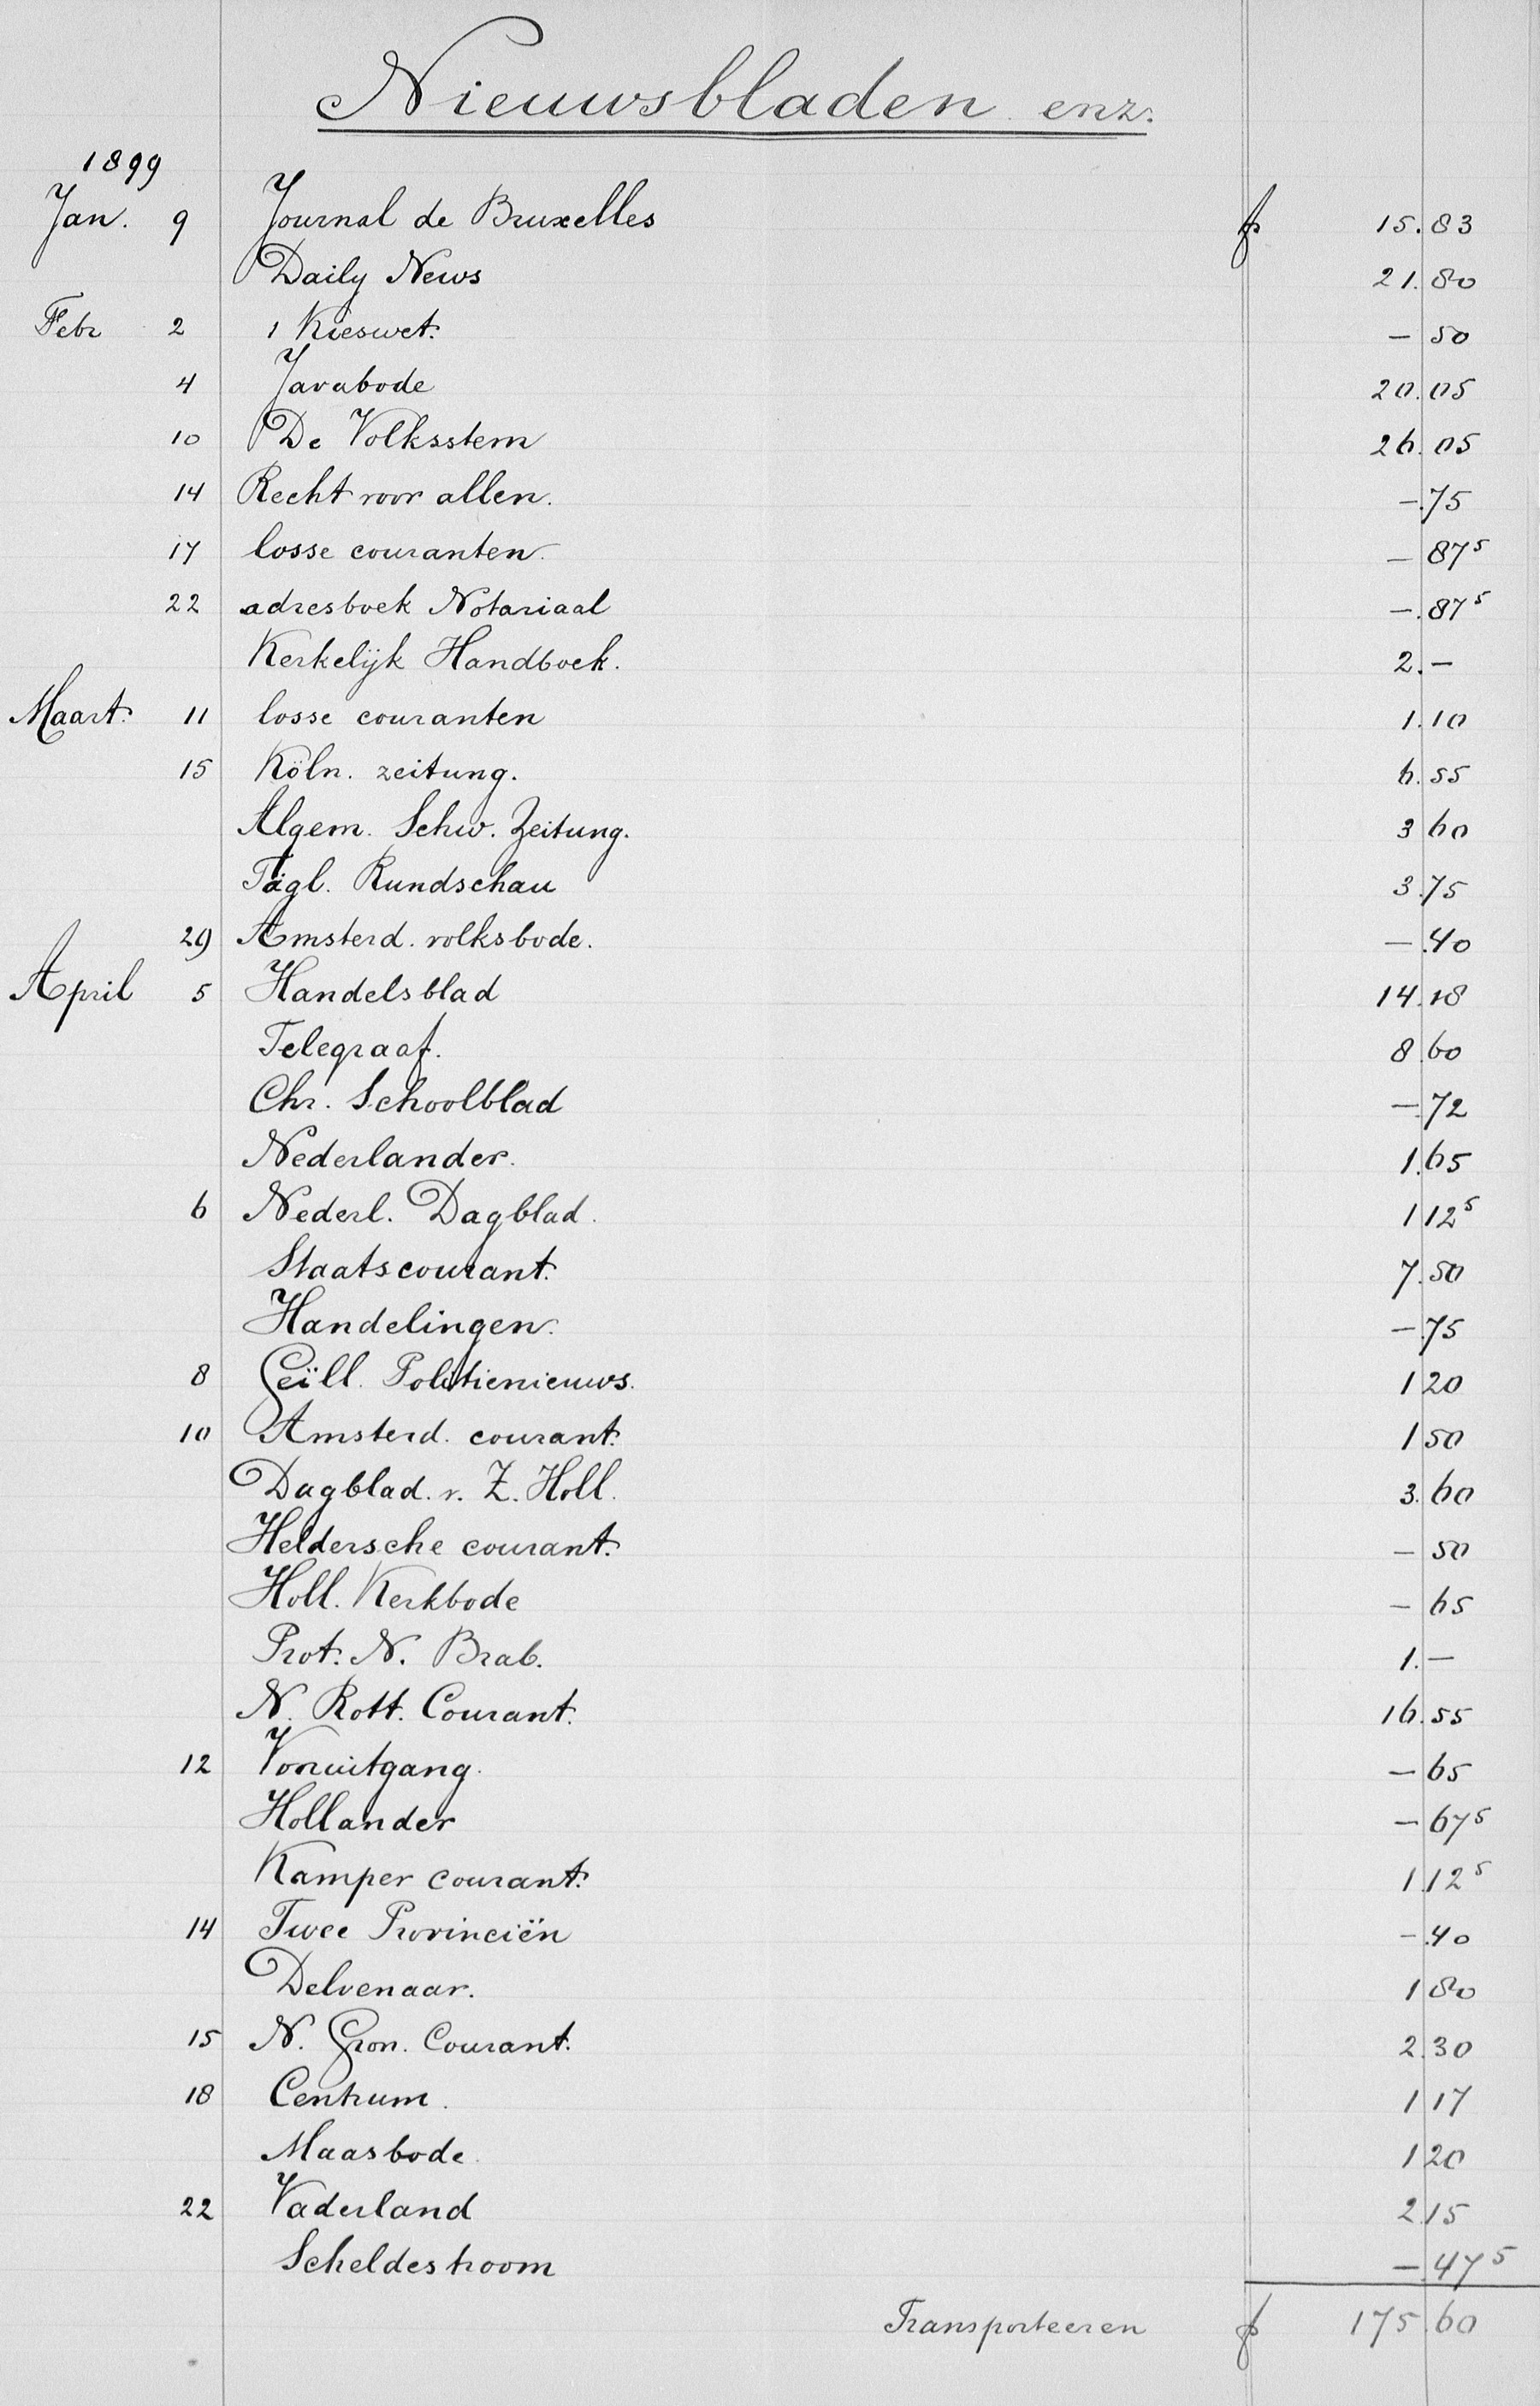 Nieuwsbladen enz.
1899
Jan. 9 Journal de Bruxelles f 15.83
Daily News 21.80
Febr 2 1 Kieswet. — 50
4 Javabode 20.05
10 De Volksstem 26.05
14 Recht voor allen. —.75
17 losse couranten. — 87⁵
22 adresboek Notariaal —.87⁵
Kerkelijk Handboek. 2.—
Maart. 11 losse couranten 1.10
15 Köln. zeitung. 6.55
Algem. Schw. Zeitung. 3 60
Tägl. Rundschau 3.75
29 Amsterd. volksbode. —.40
April 5 Handelsblad 14.18
Telegraaf. 8.60
Chr. Schoolblad —.72
Nederlander. 1.65
6 Nederl. Dagblad. 1 12⁵
Staatscourant. 7.50
Handelingen. —.75
8 Geïll. Politienieuws. 1 20
10 Amsterd. courant. 1 50
Dagblad. v. Z. Holl. 3.60
Heldersche courant. — 50
Holl. Kerkbode — 65
Prot. N. Brab. 1.—
N. Rott. Courant. 16.55
12 Vooruitgang. — 65
Hollander — 67⁵
Kamper courant. 1.12⁵
14 Twee Provinciën —.40
Delvenaar. 1 80
15 N. Gron. Courant. 2.30
18 Centrum. 1 17
Maasbode. 1 20
22 Vaderland 2.15
Scheldestroom —.47⁵
Transporteeren f 175.60